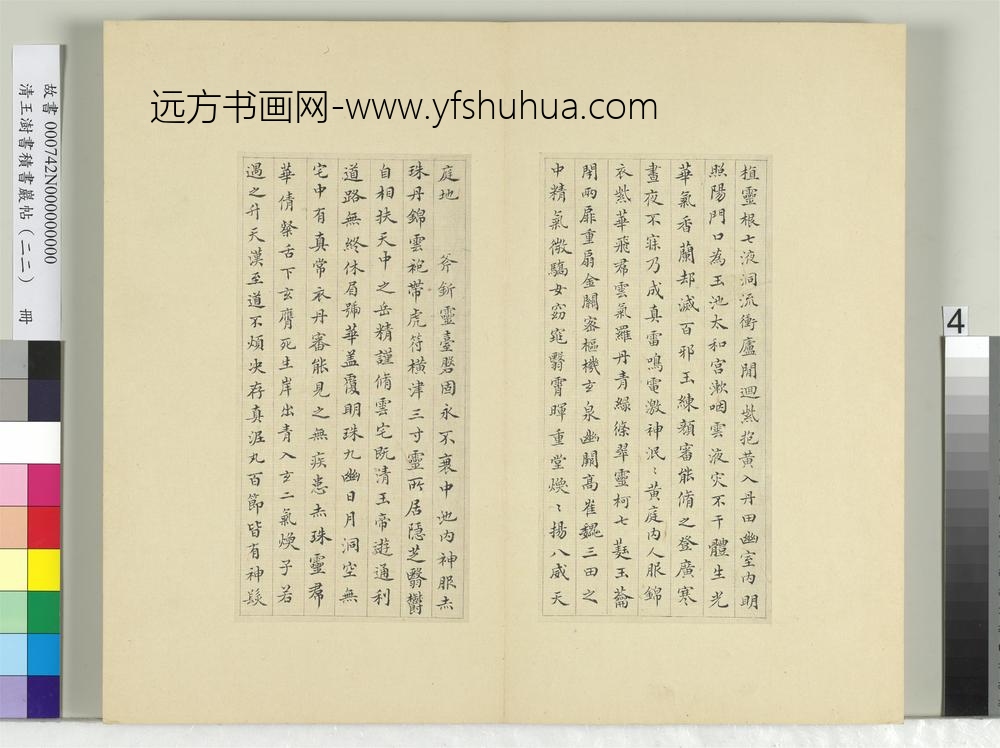 远方书画网-www.yfshuhua.com
故書 000742N000000000
清王澍書積書巖帖(二二) 冊
4
植靈根七液洞流衝廬閒迴紫抱黃入丹田幽室内明
照陽門口為玉池太和宫漱咽雲液灾不干體生光
華氣香蘭却滅百邪玉練顏審能脩之登廣寒
晝夜不寐乃成真雷鳴電激神泯〻黃庭内人服錦
衣紫華飛帬雲氣羅丹青緑絛翠靈柯七蕤玉籥
閇兩扉重扇金關密樞機玄泉幽關高崔巍三田之
中精氣微驕女窈窕翳霄暉重堂煥〻揚八威天
庭地 斧釿靈臺磐固永不衰中池内神服赤
珠丹錦雲袍帶虎符横津三寸靈所居隱芝翳鬱
自相扶天中之岳精謹脩雲宅既清玉帝遊通利
道路無終休眉號華盖覆明珠九幽日月洞空無
宅中有真常衣丹審能見之無疾患赤珠靈帬
華倩粲舌下玄膺死生岸出青入玄二氣煥子若
遇之升天漢至道不煩决存真泥丸百節皆有神髮